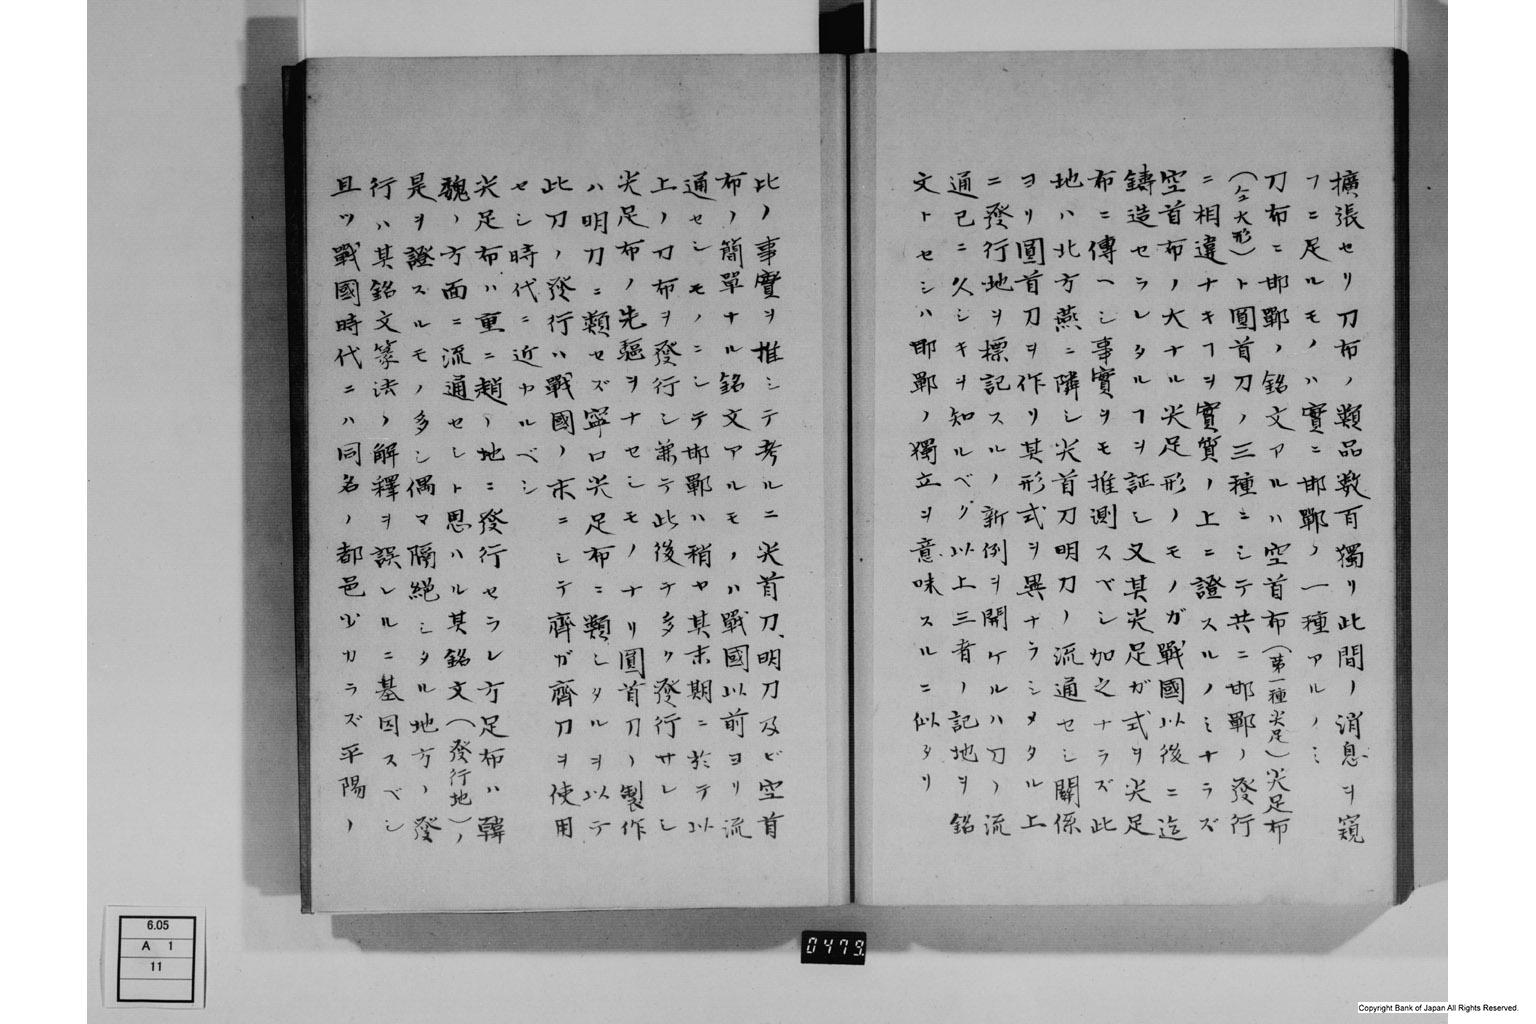 擴張セリ刀布ノ類品数百獨リ此間ノ消息ヲ窺
フニ足ルモノハ實ニ邯鄲ノ一種アルノミ
刀布ニ邯鄲ノ銘文アルハ空首布(第一種尖足)尖足布
(仝大形)ト圓首刀ノ三種ニシテ共ニ邯鄲ノ發行
ニ相違ナキヿヲ實質ノ上ニ證スルノミナラズ
空首布ノ大ナル尖足形ノモノガ戰國以後ニ迄
鑄造セラレタルヿヲ証シ又其尖足ガ式ヲ尖足
布ニ傳ヘシ事實ヲモ推測スベシ加之ナラズ此
地ハ北方燕ニ隣シ尖首刀明刀ノ流通セシ關係
ヨリ圓首刀ヲ作リ其形式ヲ異ナラシメタル上
ニ發行地ヲ標記スルノ新例ヲ開ケルハ刀ノ流
通已ニ久シキヲ知ルベク以上三者ノ記地ヲ銘
文トセシハ邯鄲ノ獨立ヲ意味スルニ似タリ
此ノ事實ヲ推シテ考ルニ尖首刀、明刀及ビ空首
布ノ簡單ナル銘文アルモノハ戰國以前ヨリ流
通セシモノニシテ邯鄲ハ稍ヤ其末期ニ於テ以
上ノ刀布ヲ發行シ兼テ此後チ多ク發行サレシ
尖足布ノ先驅ヲナセシモノナリ圓首刀ノ製作
ハ明刀ニ類セズ寧ロ尖足布ニ類シタルヲ以テ
此刀ノ發行ハ戰國ノ末ニシテ齊ガ齊刀ヲ使用
セシ時代ニ近カルベシ
尖足布ハ重ニ趙ノ地ニ發行セラレ方足布ハ韓
魏ノ方面ニ流通セシト思ハル其銘文(發行地)ノ
是ヲ證スルモノ多シ偶マ隔絶シタル地方ノ發
行ハ其銘文篆法ノ解釋ヲ誤レルニ基因スベシ
且ツ戰國時代ニハ同名ノ都邑少カラズ平陽ノ
6.05
A 1
11
0479
Copyright Bank of Japan All Rights Reserved.